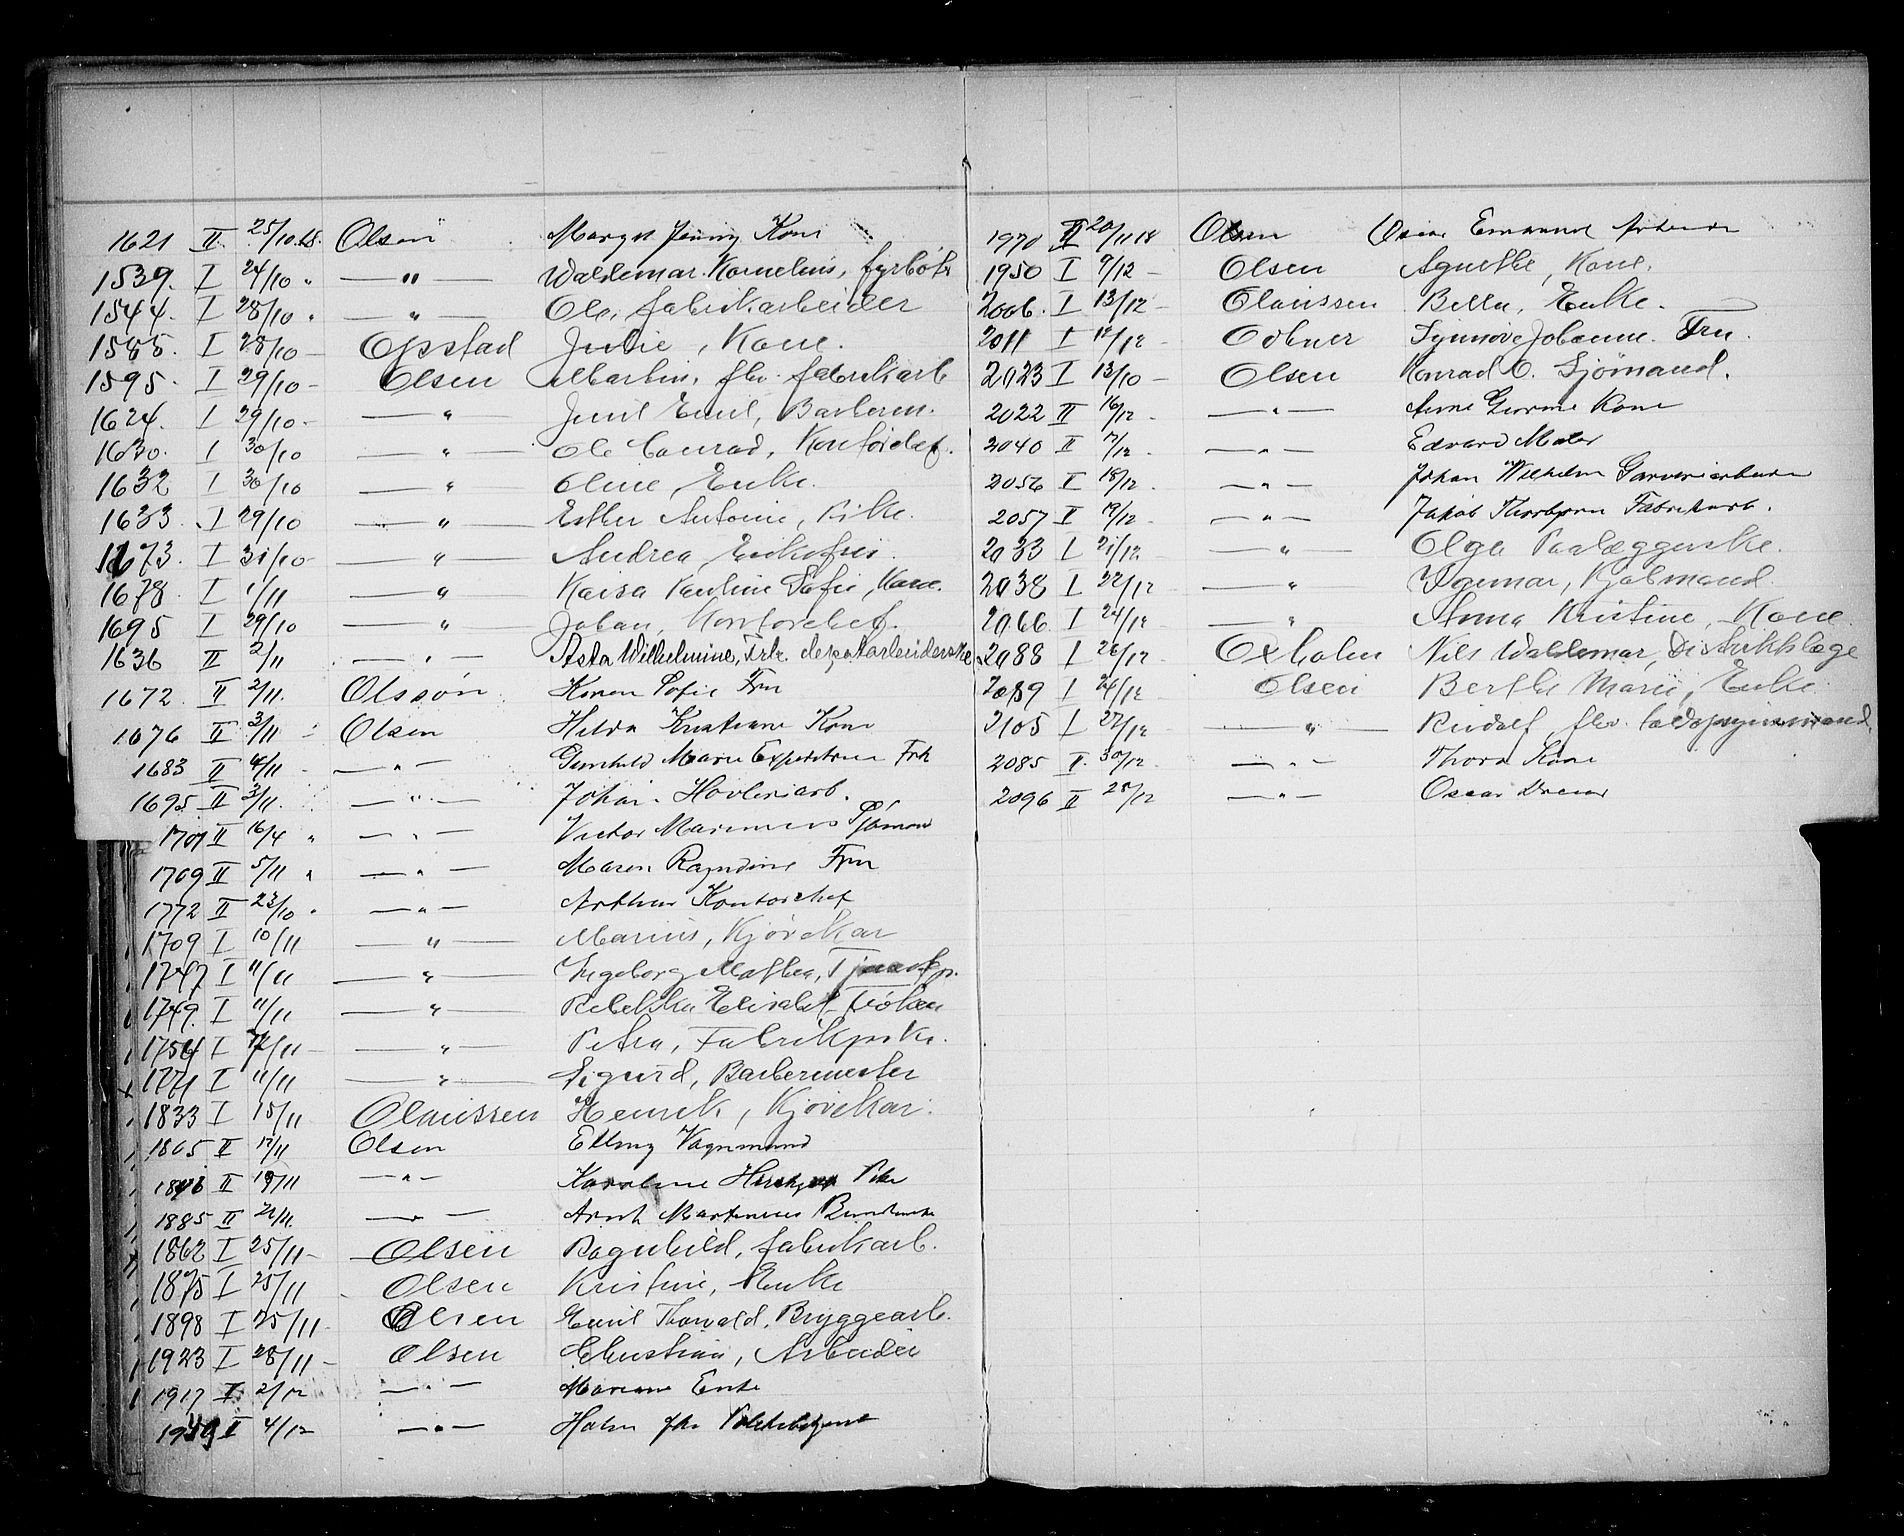 1621 II 25/10.18. Olsen Margit Jenny Kone
1539. I 24/10 " — " — Waldemar Kornelius, fyrbøt
1544. I 28/10 " — " — Ole, fabrikarbeider
1585. I 28/10 — Opstad Julie, Kone.
1595. I 29/10 — Olsen Martin, fhv. fabrikarb
1624. I 29/10 — — " — Juul Emil, Barberm.
1630. I 30/10 — " — Ole Conrad, Kontorchef.
1632 I 30/10 — " — Oline Enke.
1633. I 29/10 — " — Esther Antonie, Pike.
1673. I 31/10 — — " — Andrea Enkefru.
1678. I 1/11 — " — Kaisa Pauline Sofie, Kone.
1695 I 29/10 — " — Johan, Kontorchef.
1636 II 2/11 — " — Asta Wilhelmine, Frk. depotarbeiderske
1672 II 2/11. Olssøn Karen Sofie Fru
1676 II 3/11 Olsen Hilda Kristiane Kone
1683 II 4/11 — " — Gunhild Marie Expeditrice Frk
1695 II 3/11. — " — Johan. Høvleriarb.
1707 II 16/4 " — " — Victor Marinius Sjømand
1709 II 5/11 " — " — Maren Ragndine Fru
1772 II 23/10 " — " — Arthur Kontorchef
1709 I 10/11 — " — Marius, Kjørekar
1747 I 11/11 — " — Ingeborg Mathea,
1749. I 11/11 — " — Rebekka Elisabet Frøken
1754 I 7/11 — — " — Petra, Fabrikpike.
1771 I 11/11 — " — Sigurd, Barbermester
1833 I 15/11 Olaussen Henrik, Kjørekar.
1865 II 17/11 Olsen Elling Vognmand
II 19/11 — " — Karoline Pike
1885 II 21/11 — " — Arnt Martinius
1862 I 25/11 — Olsen Ragnhild, fabrikarb.
1875 I 25/11 Olsen Kristine, Enke
1898 I 25/11 Olsen Emil Thorvald, Bryggearb.
1923 I 28/11 — Olsen Christian, Arbeider
1917 II 2/12 — " — Mariane Enke
II 4/12 — " — Halvor fhv
1970 II 20/11 18 Olsen Oscar Emanuel Arbeider
1950 I 9/12 — Olsen Agnethe, Kone.
2006. I 13/12 — Olaussen Bella, Enke.
2011 I 12/12 — Odner Synnøve Johanne. Fru.
2023 I 13/10 — Olsen Konrad O. Sjømand.
2022 II 16/12 — " — Anne Gurine Kone
2040 II 17/12 — " — Edvard Maler
2056 II 18/12 — " — Johan Wilhelm Garveriarbeider
2057 II 19/12 — " — Jakob Thorbjørn Fabrikarb.
2033 I 21/12 — " — Olga Paalæggerske.
2038 I 22/12 — " — Ingemar, Kjøbmand
2066 I 24/12 — " — Anna Kristine, Kone
2088 I 26/12 Oxholm Nils Waldemar, Distriktslæge
2089 I 24/12 Olsen Berthe Marie, Enke
2105 I 27/12 — " — Rudolf, fhv. toldopsynsmand
2085 II 30/12 — " — Thora Kone
2096 II 28/12 — " — Oscar Dreier